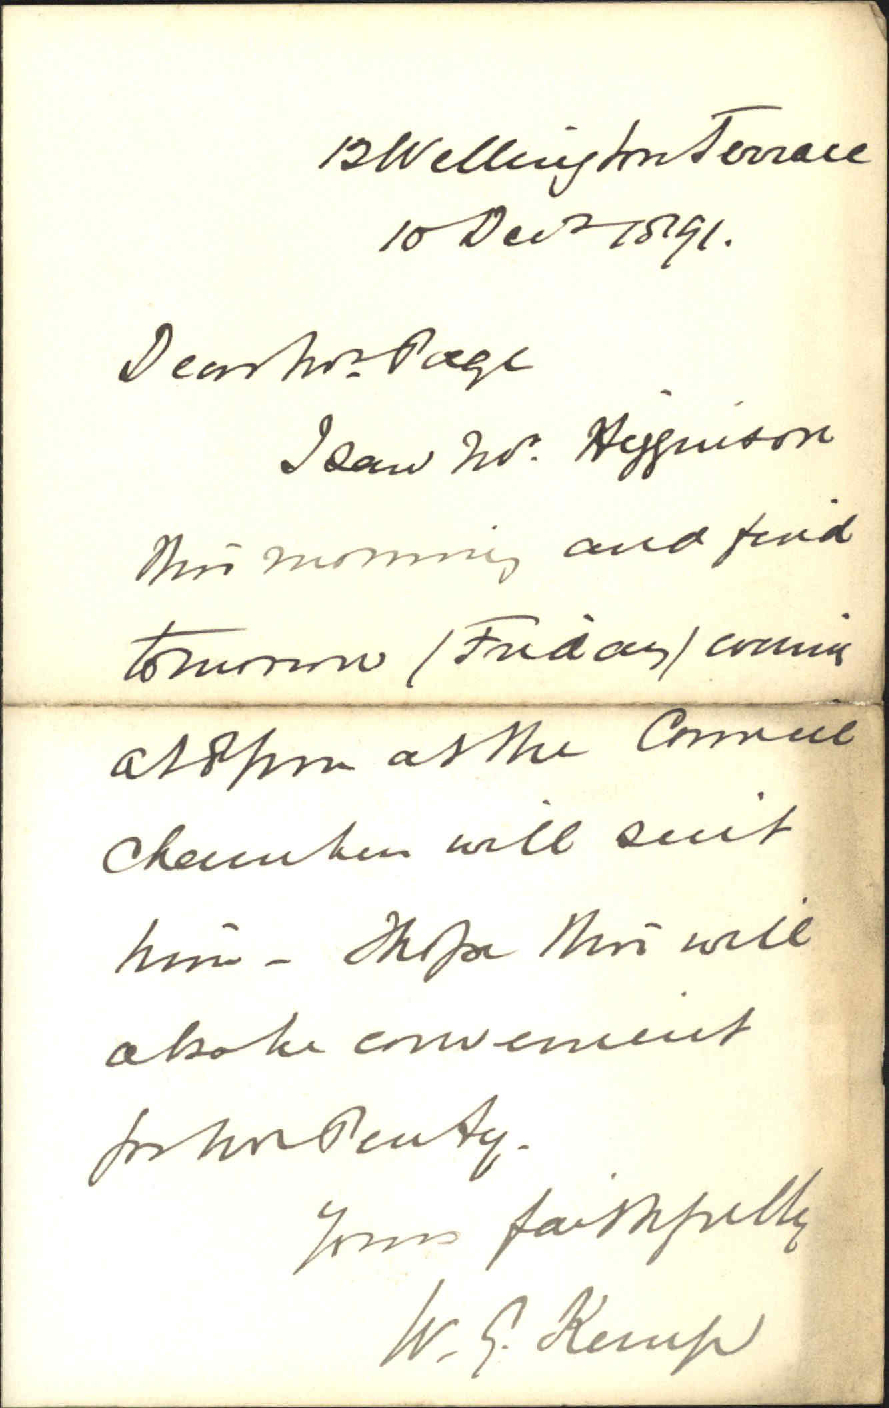 12 Wellington Terrace
10 Decr 1891.
Dear Mr. Page
I saw Mr. Higginson
this morning and find
tomorrow (Friday) evening
at 8 pm at the Council
Chambers will suit
him - I hope this will
also be convenient
for Mr Penty.
Yours faithfully
W. G. Kemp